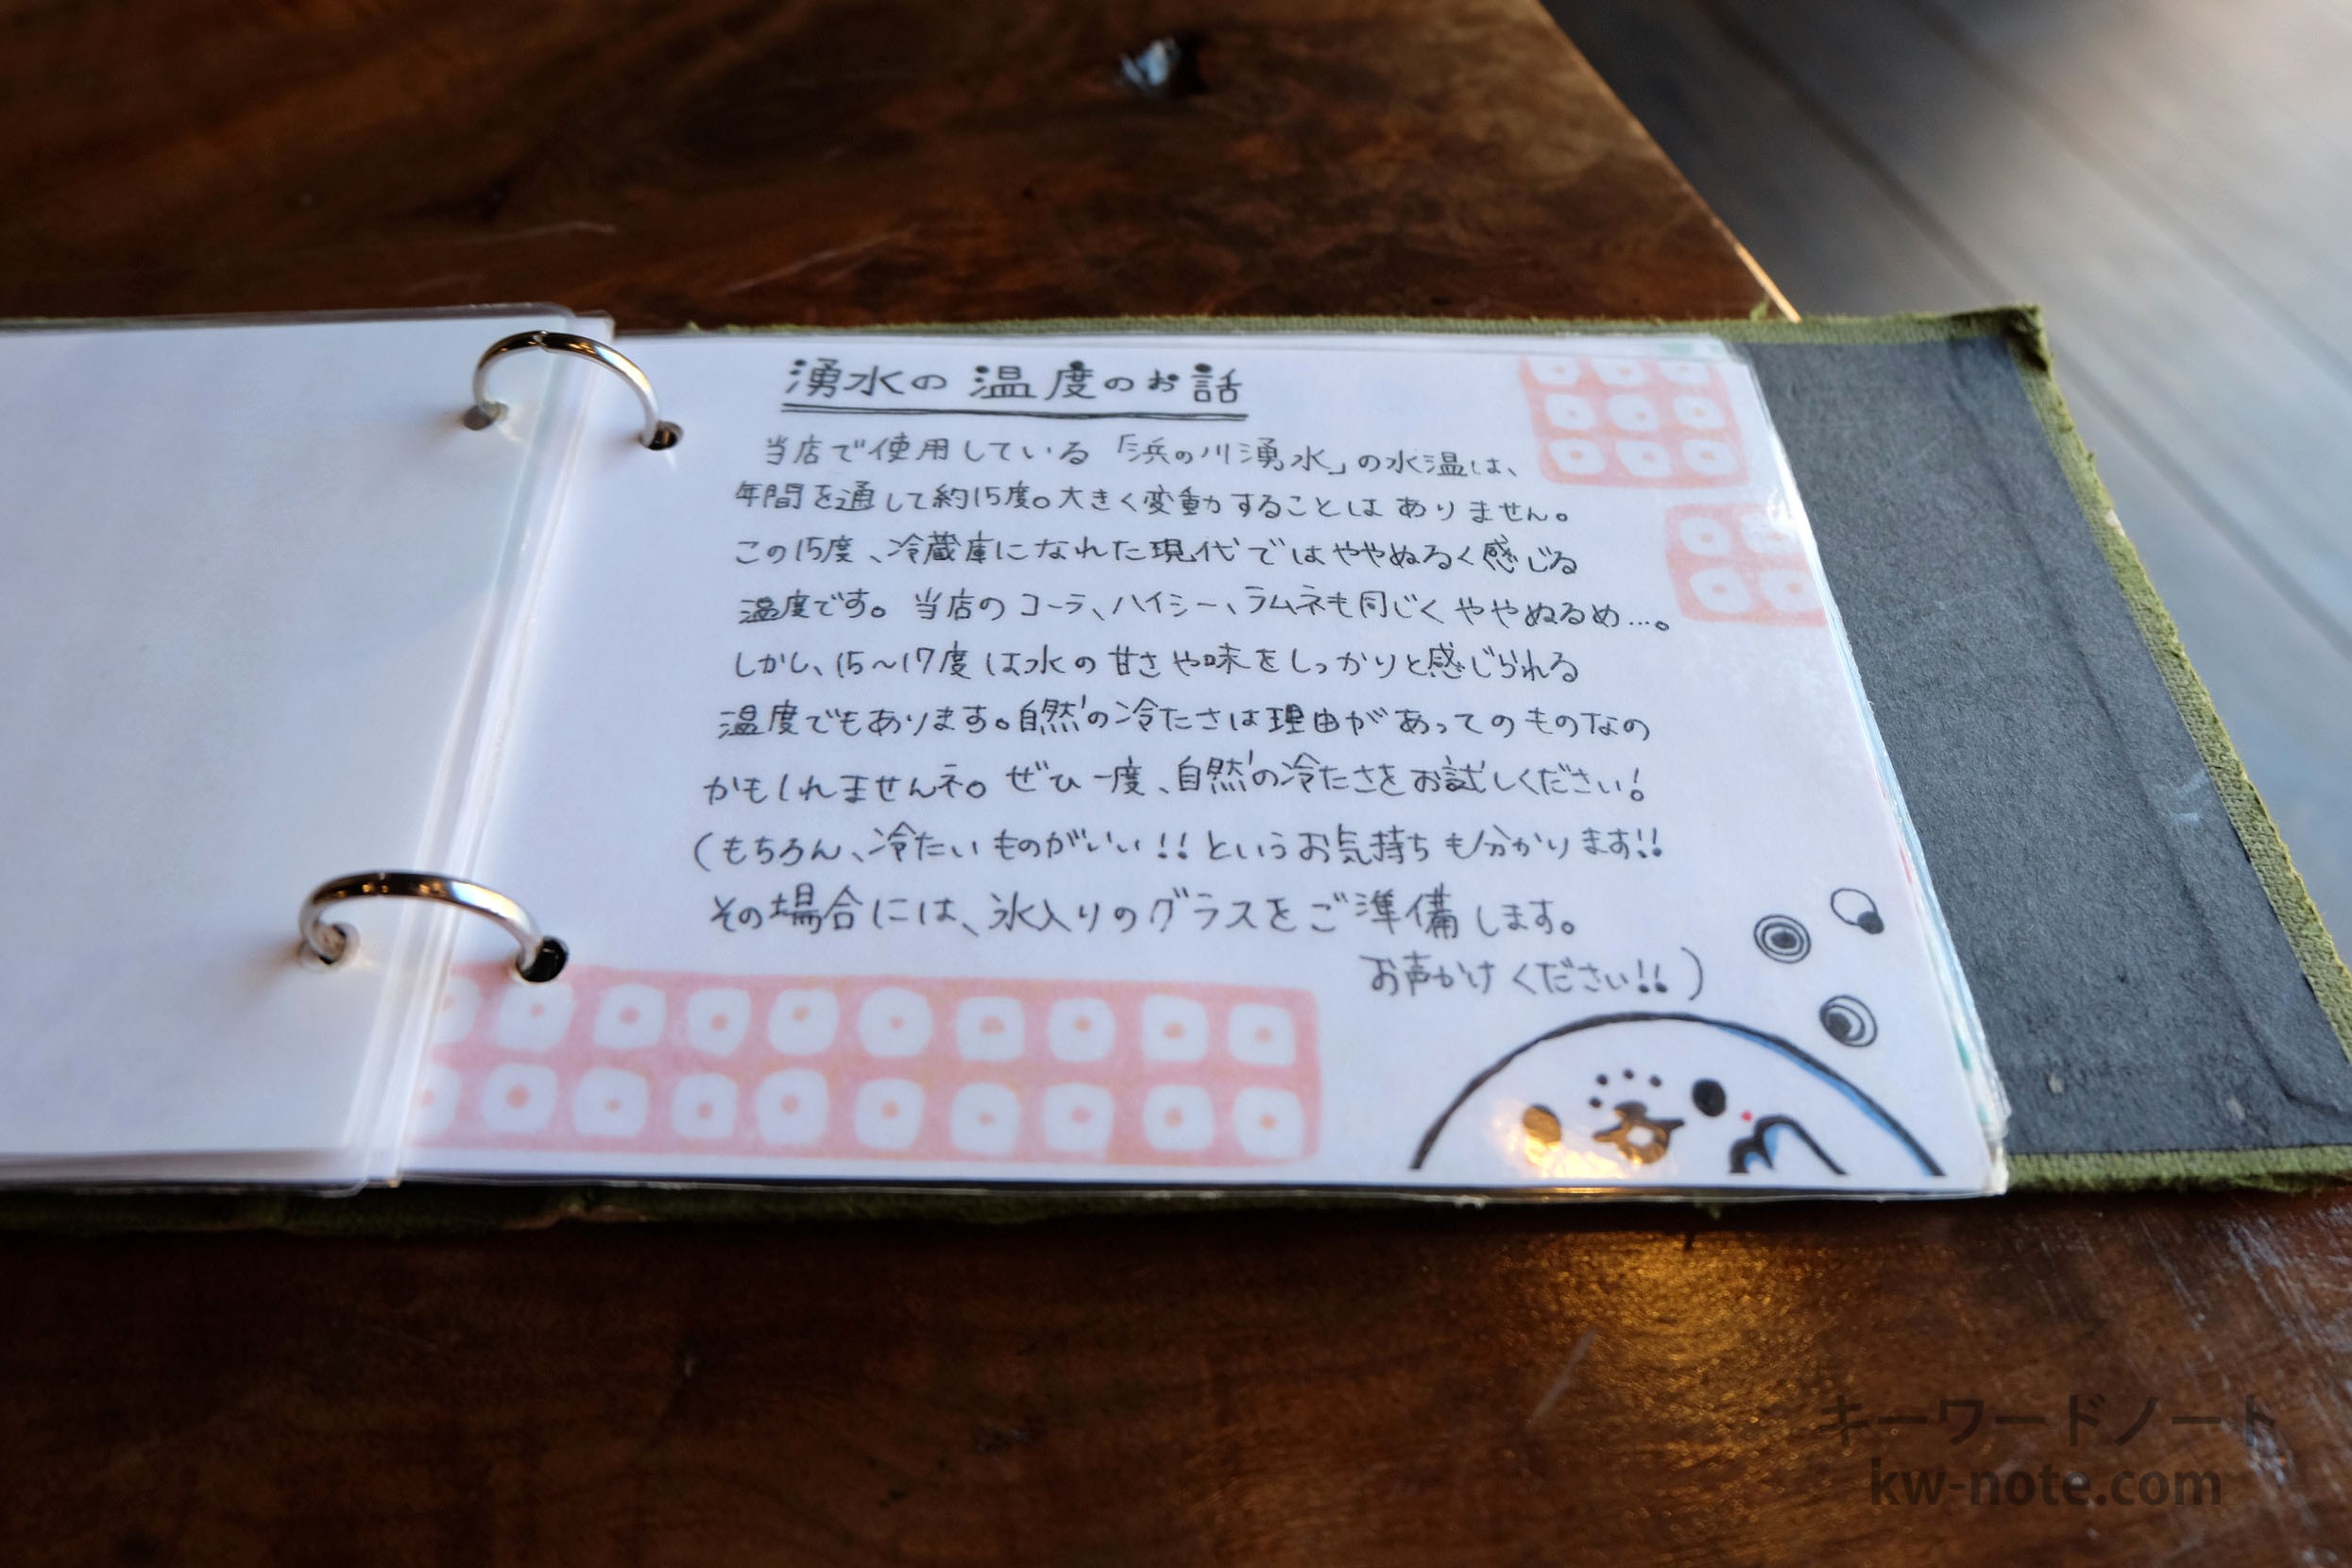 湧水の温度のお話
当店で使用している「浜の川湧水」の水温は、
年間を通して約15度。大きく変動することはありません。
この15度、冷蔵庫になれた現代ではややぬるく感じる
温度です。当店のコーラ、ハイシー、ラムネも同じくややぬるめ…。
しかし、15〜17度は水の甘さや味をしっかりと感じられる
温度でもあります。自然の冷たさは理由があってのものなの
かもしれませんネ。ぜひ一度、自然の冷たさをお試しください!
(もちろん、冷たいものがいい!!というお気持ちも分かります!!
その場合には、氷入りのグラスをご準備します。
お声かけください!!)
キーワードノート
kw-note.com